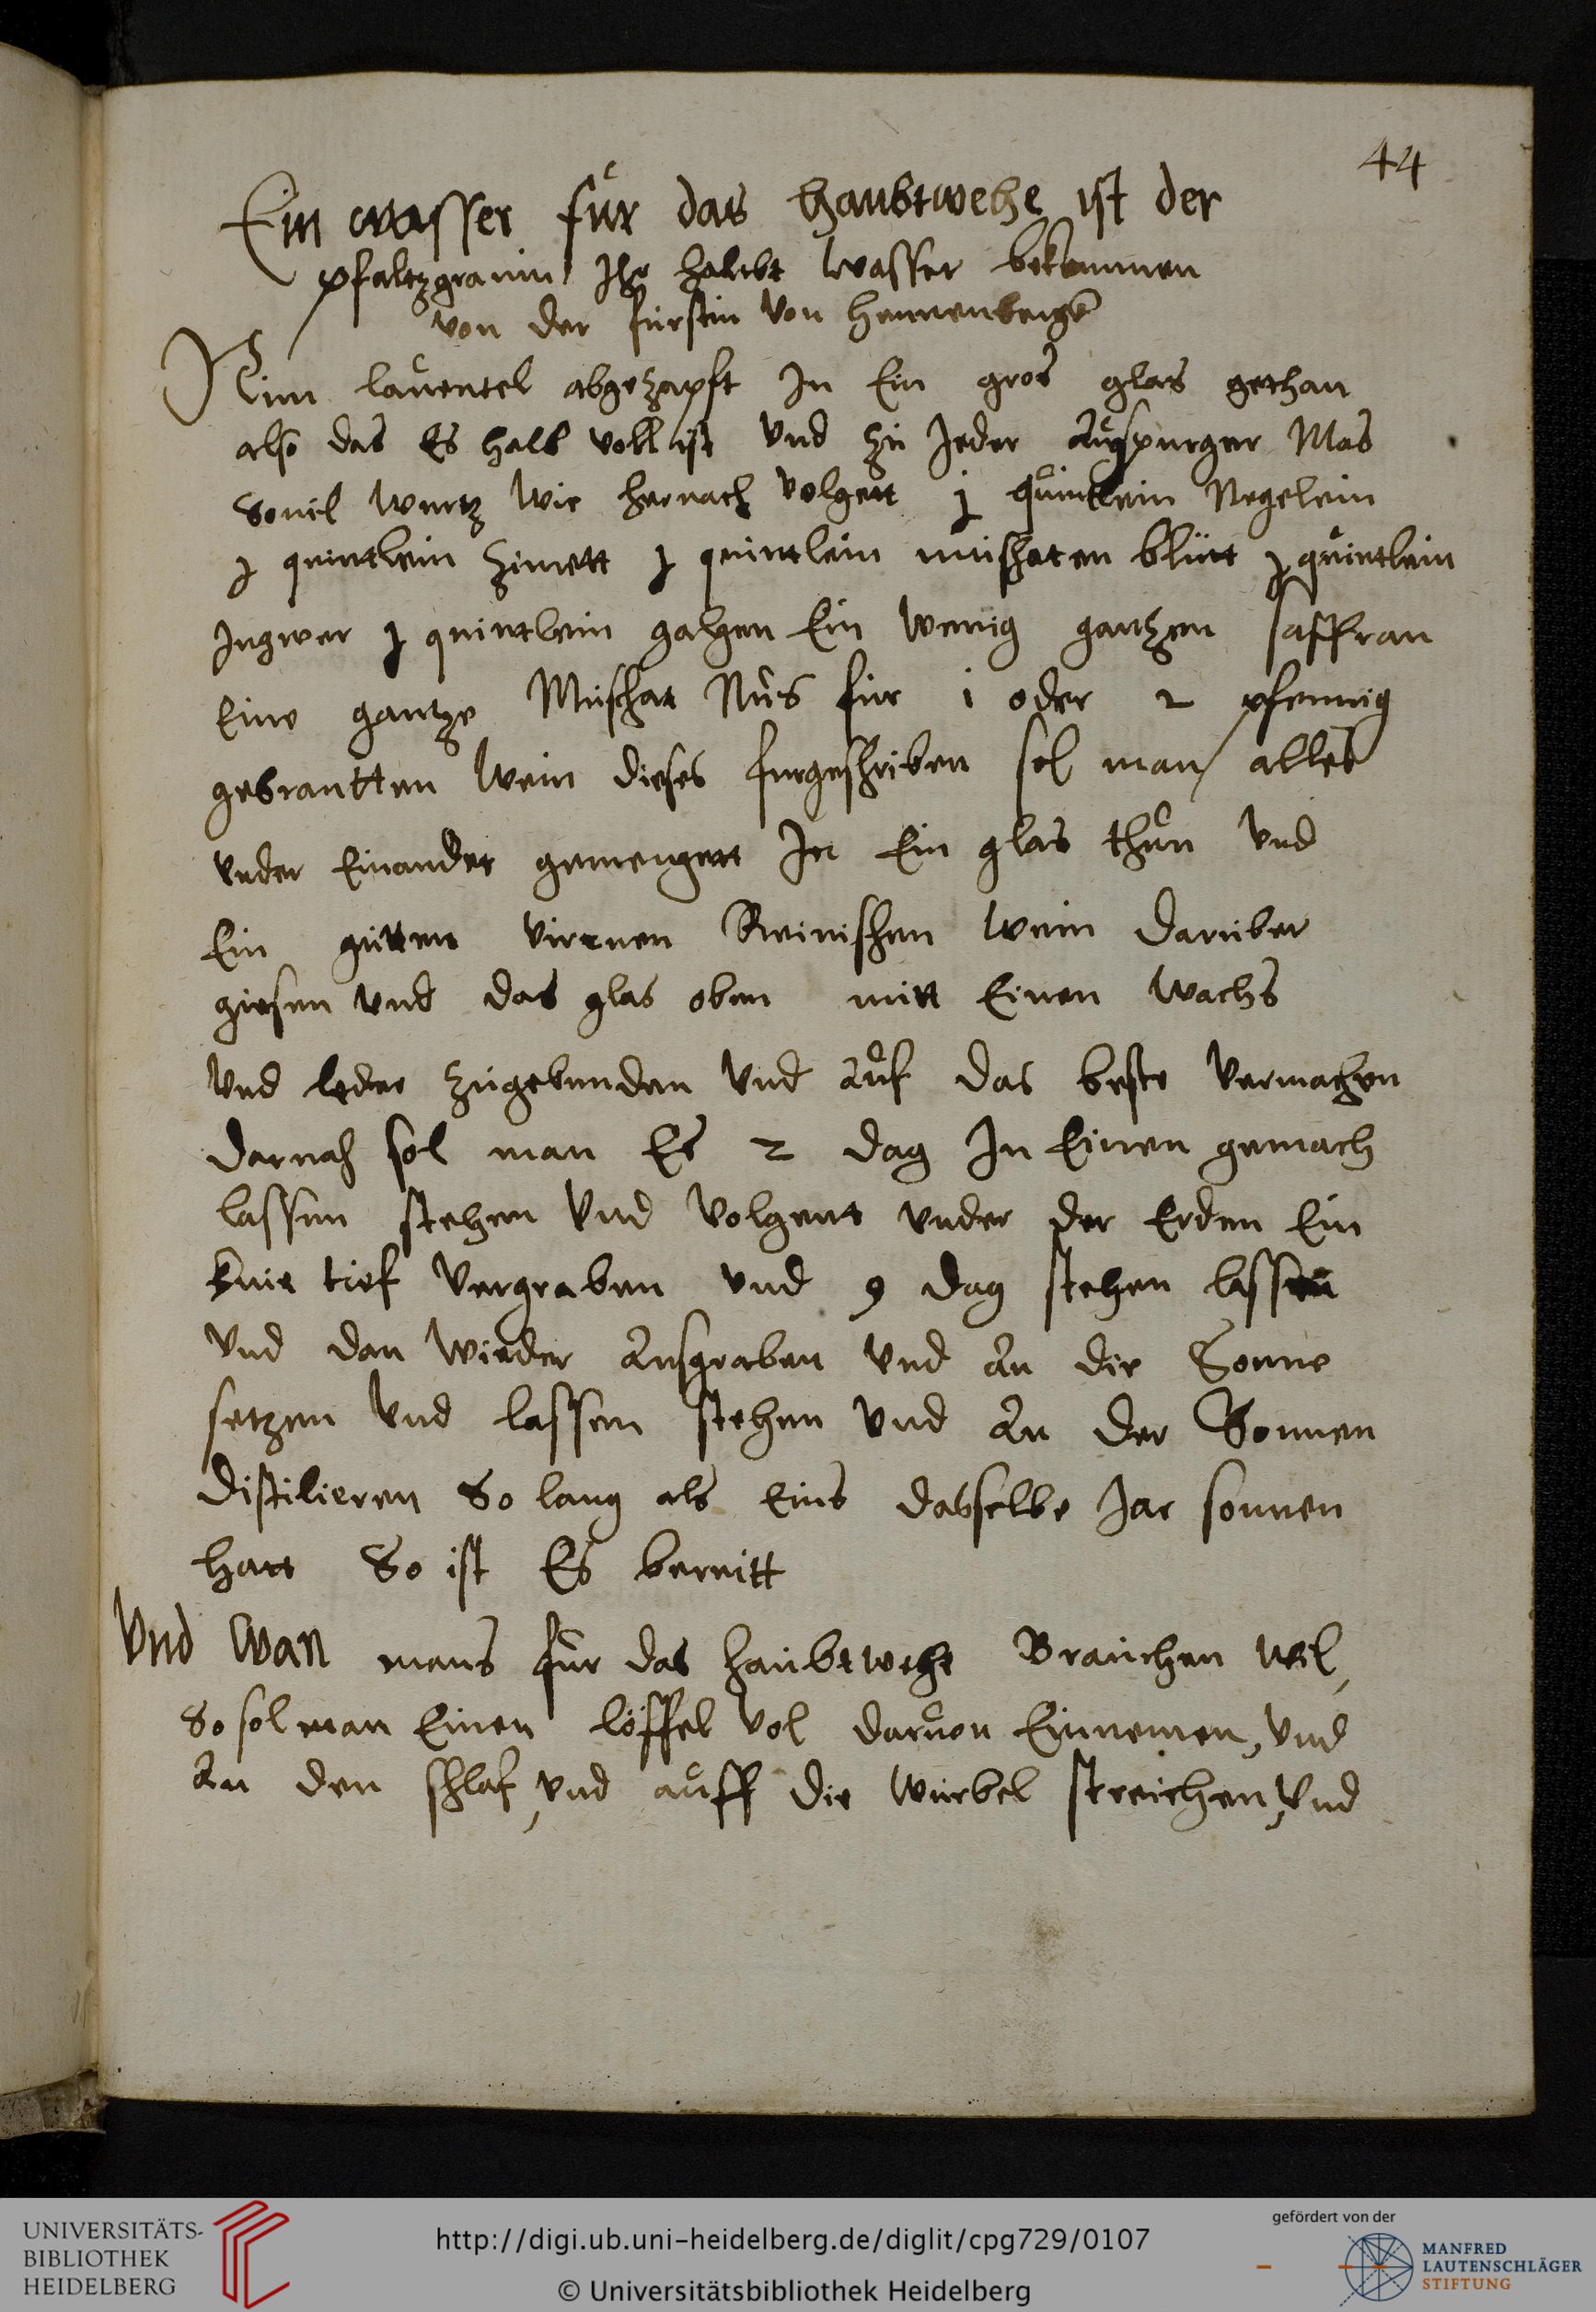 44
Ein wasser für das haubtwehe ist der
pfaltzgrauin Ihr haubt wasser bekommen
von der fürstin von hennenberg
Nim lauentel abgezapft In Ein gros glas gethan
also das Es halb voll ist vnd zu Jeder Auspurger Mas
Souil wurtz wie hernach volgett j quintlein Negelein
j quintlein zimett j quintlein muschaten blütt j quintlein
Ingwer j quintlein galgen Ein wenig gantzen saffran
Eine gantze Muschat Nus für i oder 2 pfennig
gebrantten wein dieses furgeschriben sol man alles
vnder Einander gemengett In Ein glas thun vnd
Ein gutten virnen Reinischen wein daruber
giesen vnd das glas oben mitt Einen wachs
vnd leder zugebunden vnd Auf das beste vermachen
darnach sol man Es 2 dag In Einen gemach
lassen stehen vnd volgent vnder der Erden Ein
knie tief vergraben vnd 9 dag stehen lassen
vnd dan wieder Ausgraben vnd An die Sonne
setzen vnd lassen stehen vnd An der Sonnen
distilieren So lang als Eins dasselbe Jar sonnen
hatt So ist Es bereitt
Vnd wan mans für das haubtwehe Brauchen wil,
So sol man Einen löffel vol daruon Einnemen, vnd
An den schlaf, vnd auff die würbel streichen, vnd
UNIVERSITÄTS-
BIBLIOTHEK
HEIDELBERG
http://digi.ub.uni-heidelberg.de/diglit/cpg729/0107
© Universitätsbibliothek Heidelberg
gefördert von der
MANFRED
LAUTENSCHLÄGER
STIFTUNG